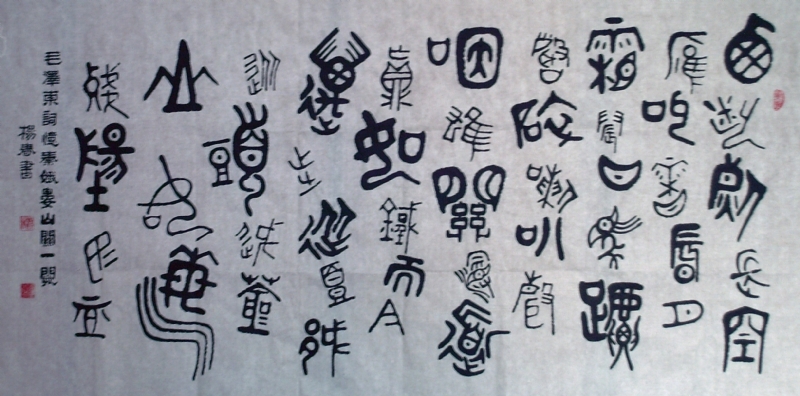 西風烈長空
雁叫霜晨月
霜晨月馬蹄
聲碎喇叭聲
咽雄關漫道
真如鐵而今
邁步從頭越
從頭越蒼
山如海
殘陽如血
毛澤東詞憶秦娥婁山關一闋
楊書